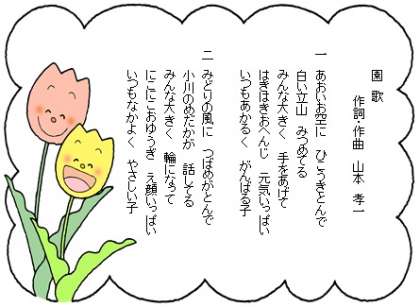 園 歌
作詞・作曲 山本 孝一
一 あおいお空に ひこうきとんで
白い立山 みつめてる
みんな大きく 手をあげて
はきはきおへんじ 元気いっぱい
いつもあかるく がんばる子
二 みどりの風に つばめがとんで
小川のめだかが 話してる
みんな大きく 輪になって
にこにこおゆうぎ え顔いっぱい
いつもなかよく やさしい子